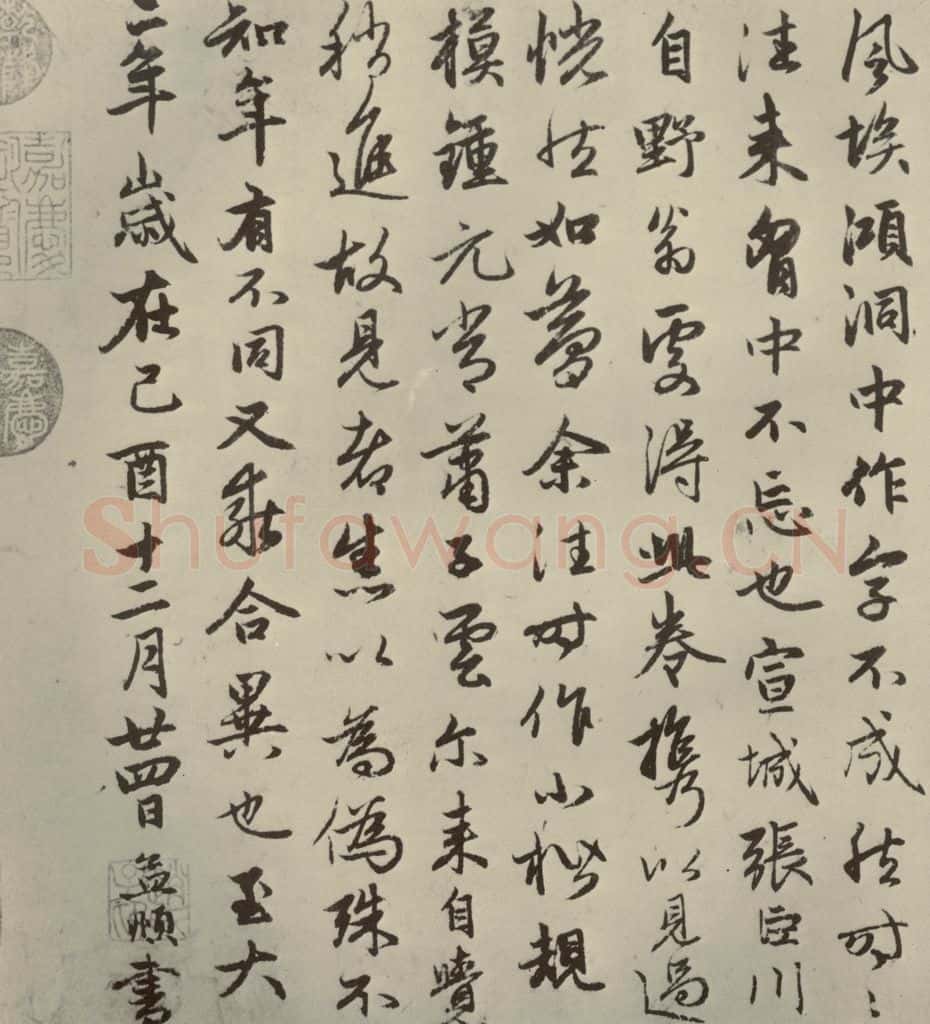 風埃澒洞中作字不成然時〻
往来胷中不忘也宣城張巨川
自野翁處得此卷携以見過
恍然如夢余往時作小楷規
模鍾元常蕭子雲尔来自覺
稍進故見者悉以為偽殊不
知年有不同又乖合異也至大
二年歲在己酉十二月廿四日孟頫書
嘉慶
嘉慶
Shufawang.CN